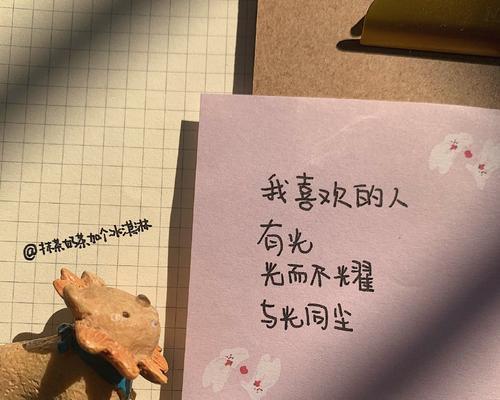 我喜欢的人
有光
光而不耀
与光同尘
@抹茶奶茶加个冰淇淋